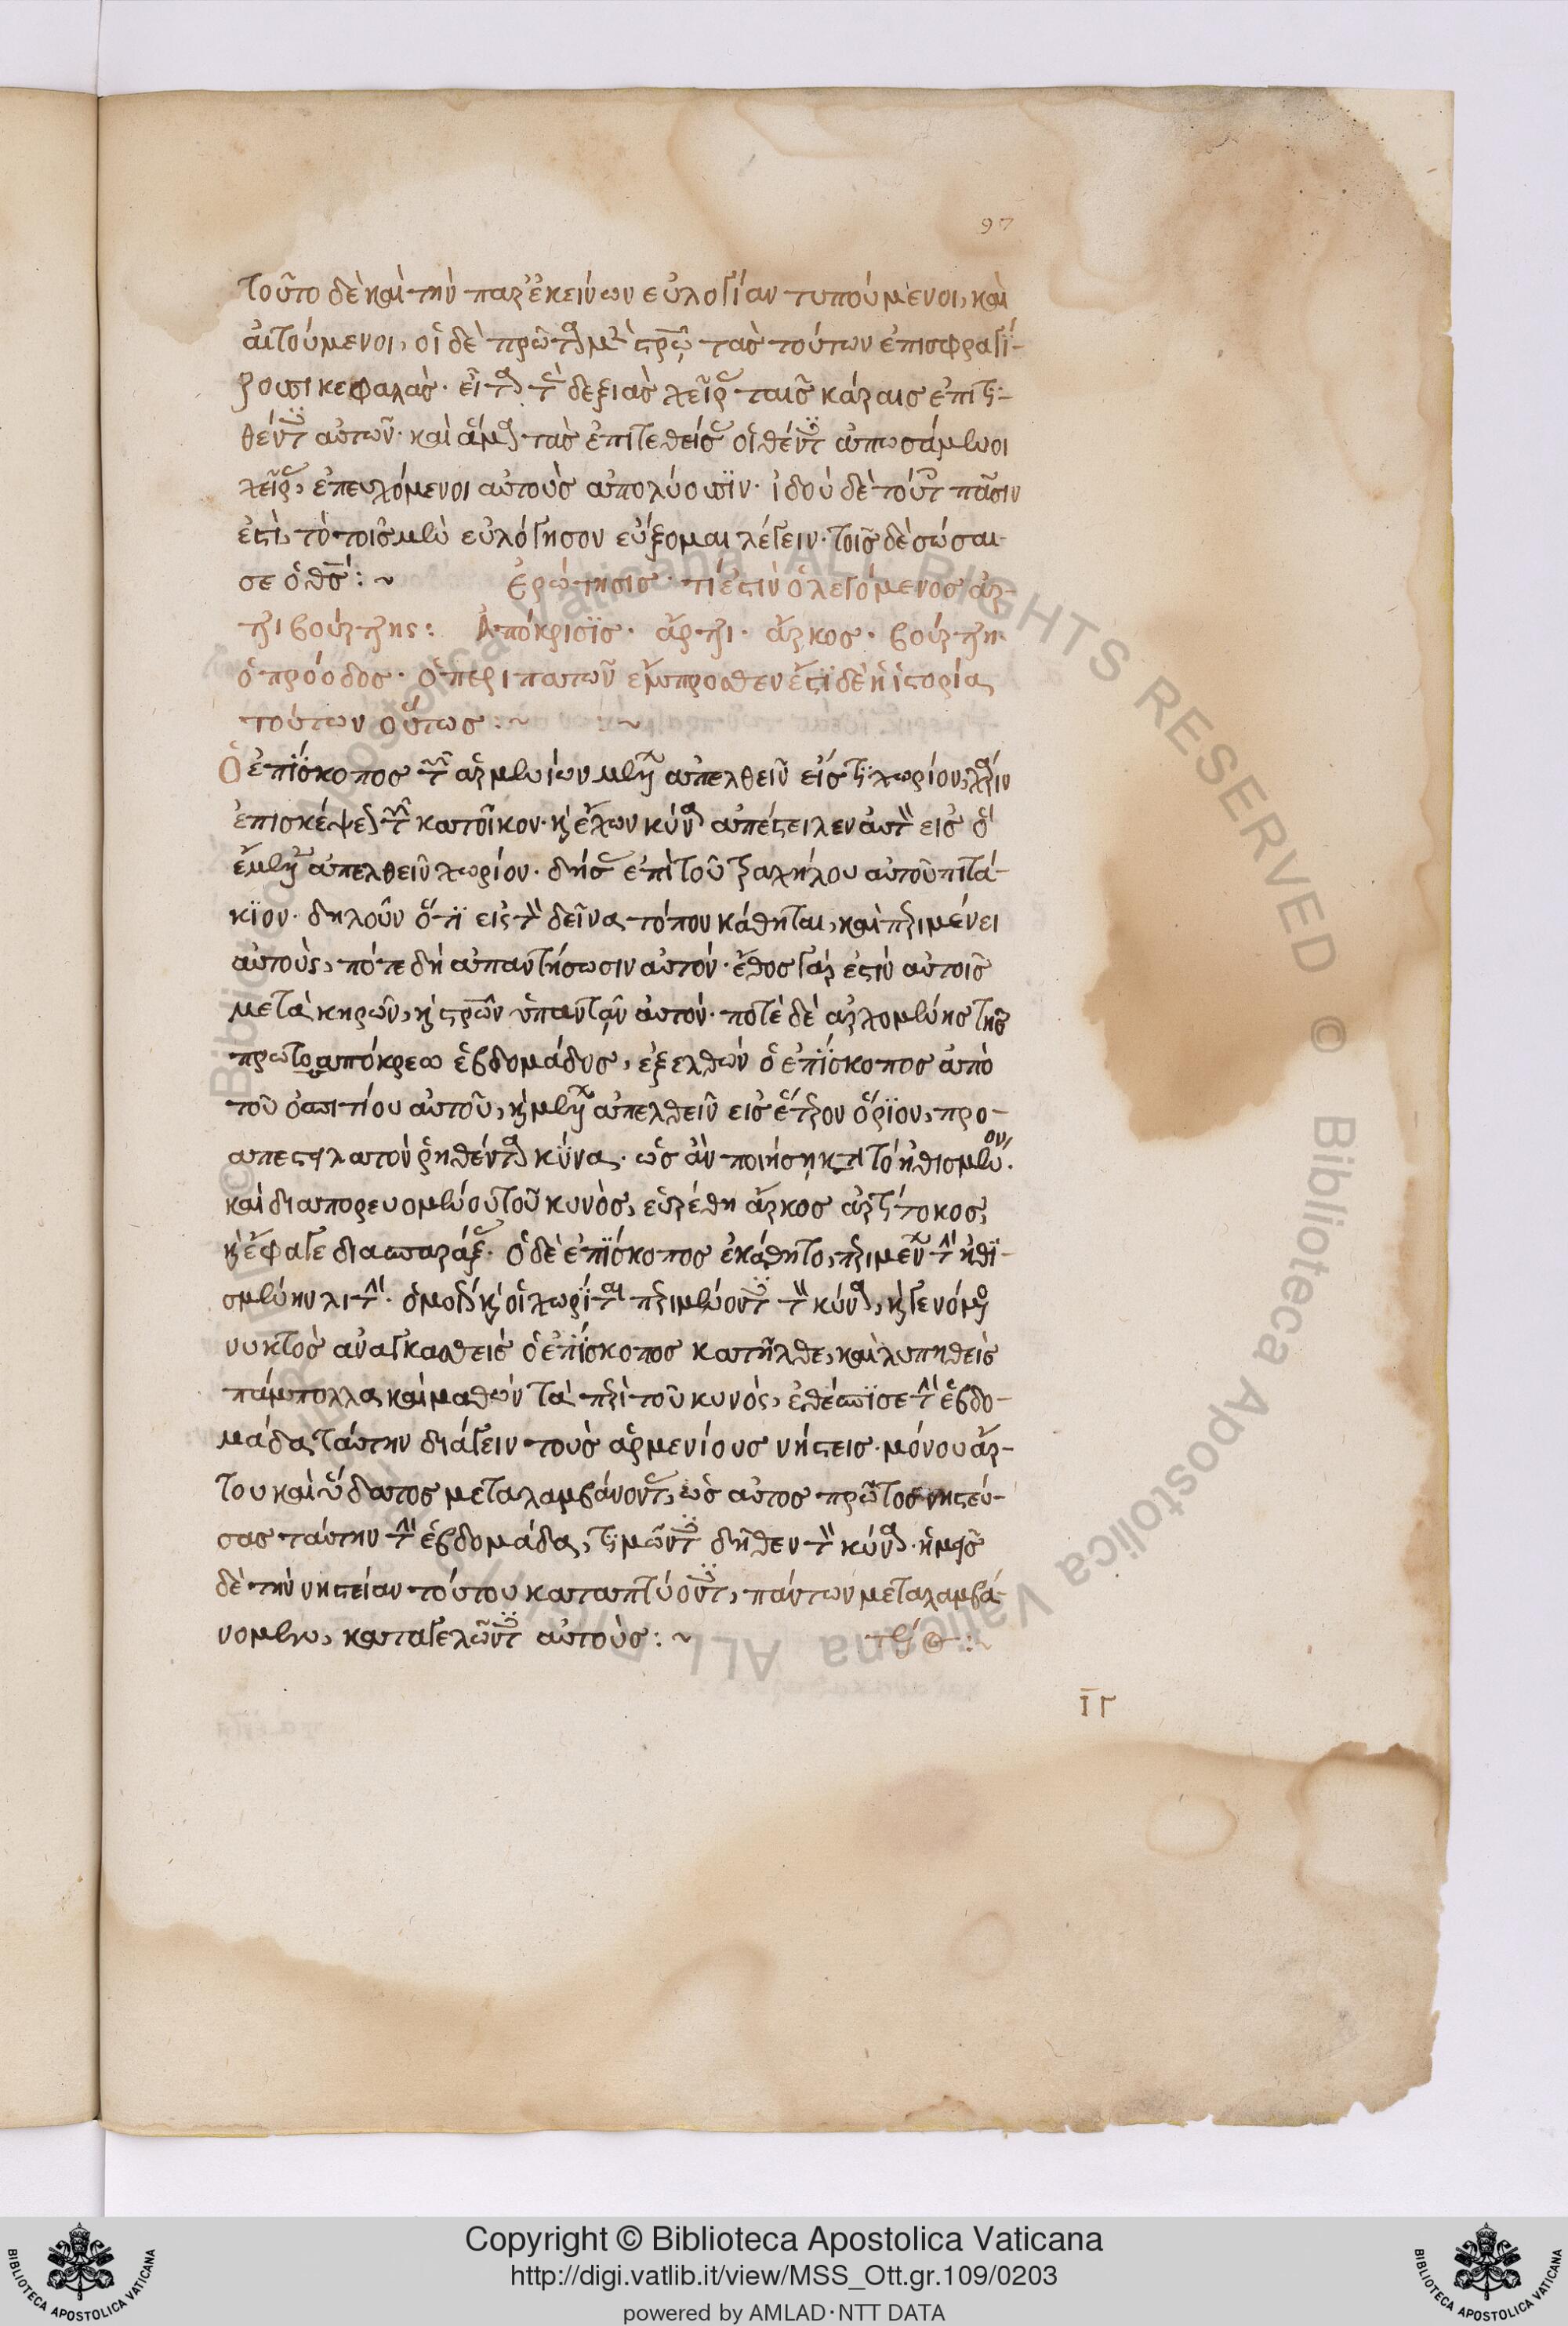 97
τοῦτο δὲ καὶ τὴν παρ' ἐκείνων εὐλογίαν τυπούμενοι, καὶ
αἰτούμενοι, οἱ δὲ πρῶτα μὲν τὰς τούτων ἐπισφραγί-
ζουσι κεφαλὰς. εἶτα τὰς δεξιὰς χεῖρας ταῖς κάραις ἐπιτι-
θέντες αὐτῶν. καὶ ἅμα τὰς ἐπιτεθείσας οἱ θέντες ἀπωσάμενοι
χεῖρας, ἐπευχόμενοι αὐτοὺς ἀπολύουσιν. ἰδοὺ δὲ πᾶσιν
ἐστὶ, τὸ τοῖς μὲν εὐλόγησον εὔξομαι λέγειν. τοῖς δὲ σώσαι
σε ὁ θς: ~ Ἐρώτησις. τί ἐστιν ὁ λεγόμενος ἀρ-
τζιβούρτζης: Ἀπόκρισις. ἄρτζι. ἄρκος. βούρτζη.
ὁ πρόοδος. ὁ περιπατῶν ἔμπροσθεν ἔστι δὲ ἡ ἱστορία
τούτων οὕτως: ~ : ~
Ὁ ἐπίσκοπος τῶν ἀρμενίων μέλλων ἀπελθεῖν εἴς τι χωρίον, χάριν
ἐπισκέψεως τῶν κατοίκων. καὶ ἔχων κύνα ἀπέστειλεν αὐτὸν εἰς ὃ
ἔμελλεν ἀπελθεῖν χωρίον. δήσας ἐπὶ τοῦ τραχήλου αὐτοῦ πιτά-
κιον. δηλοῦν ὅτι εἰς τὸν δεῖνα τόπον κάθηται, καὶ περιμένει
αὐτοὺς, πότε δὴ ἀπαντήσωσιν αὐτόν. ἔθος γάρ ἐστιν αὐτοῖς
μετὰ κηρῶν, καὶ στρῶν ὑπαντᾶν αὐτόν. ποτὲ δὲ ἀρχομένης τῆς
πρώτο ἀπόκρεω ἑβδομάδος, ἐξελθὼν ὁ ἐπίσκοπος ἀπὸ
τοῦ ὁσπιτίου αὐτοῦ, καὶ μέλλων ἀπελθεῖν εἰς ἕτερον ὅριον, προ-
απέστειλα τὸν ῥηθέντα κύνα. ὡς ἂν ποιήσῃ κατὰ τὸ ἠθισμένον.
καὶ διαπορευομένου τοῦ κυνὸς, εὑρέθη ἄρκος ἀρτίτοκος,
καὶ ἔφαγε διασπαράξας. ὁ δὲ ἐπίσκοπος ἐκάθητο, περιμένων τὴν ἠθι-
σμένην λιτήν. ὁμοίως καὶ οἱ χωρίται περιμένοντες τὸν κύνα, καὶ γενομένης
νυκτὸς ἀναγκασθεὶς ὁ ἐπίσκοπος κατῆλθε, καὶ λυπηθεὶς
πάμπολλα καὶ μαθὼν τὰ περὶ τοῦ κυνὸς, ἐθέσπισε τὴν ἑβδο-
μάδα ταύτην διάγειν τοὺς ἀρμενίους νήστεις. μόνου ἄρ-
του καὶ ὕδατος μεταλαμβάνοντας, ὡς αὐτος πρῶτος νηστεύ-
σας ταύτην τὴν ἑβδομάδα, τιμῶντες δῆθεν τὸν κύνα. ἡμεῖς
δὲ τὴν νηστείαν τούτου καταπτύοντες, πάντων μεταλαμβά-
νομεν, καταγελῶντες αὐτοὺς: ~ τέλος: ~
ΙΓ
Copyright © Biblioteca Apostolica Vaticana
http://digi.vatlib.it/view/MSS_Ott.gr.109/0203
powered by AMLAD·NTT DATA